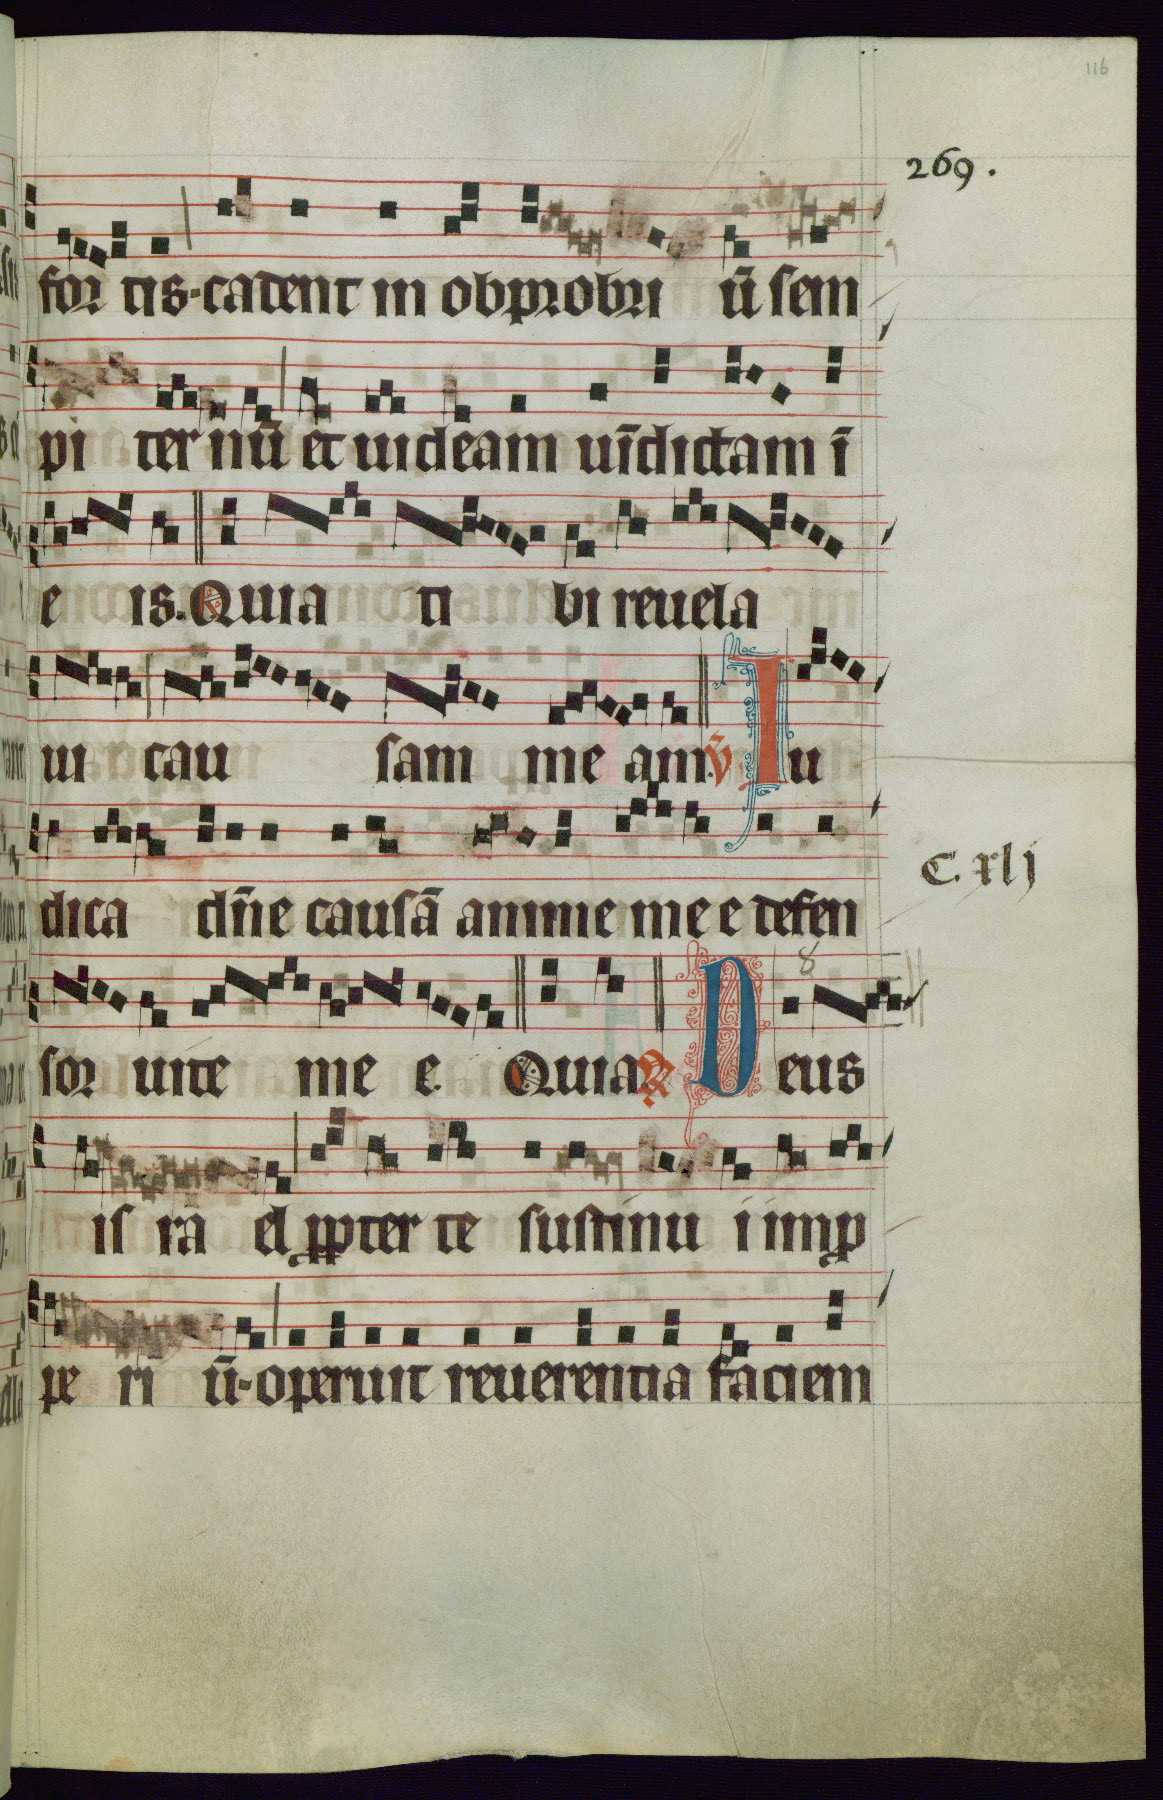 116
269.
for tis-cadent in obprobri ū sem
pi ter nū et uideam uīdictam ī
e is. Quia ti bi reuela
ui cau sam me am. V̄ Iu
C. xlj
dica dn̄e causā anime me e defen
8
sor uite me e. Quia R Deus
is ra el ꝓpter te sustinu i imp
pe ri ū-operuit reuerentia faciem